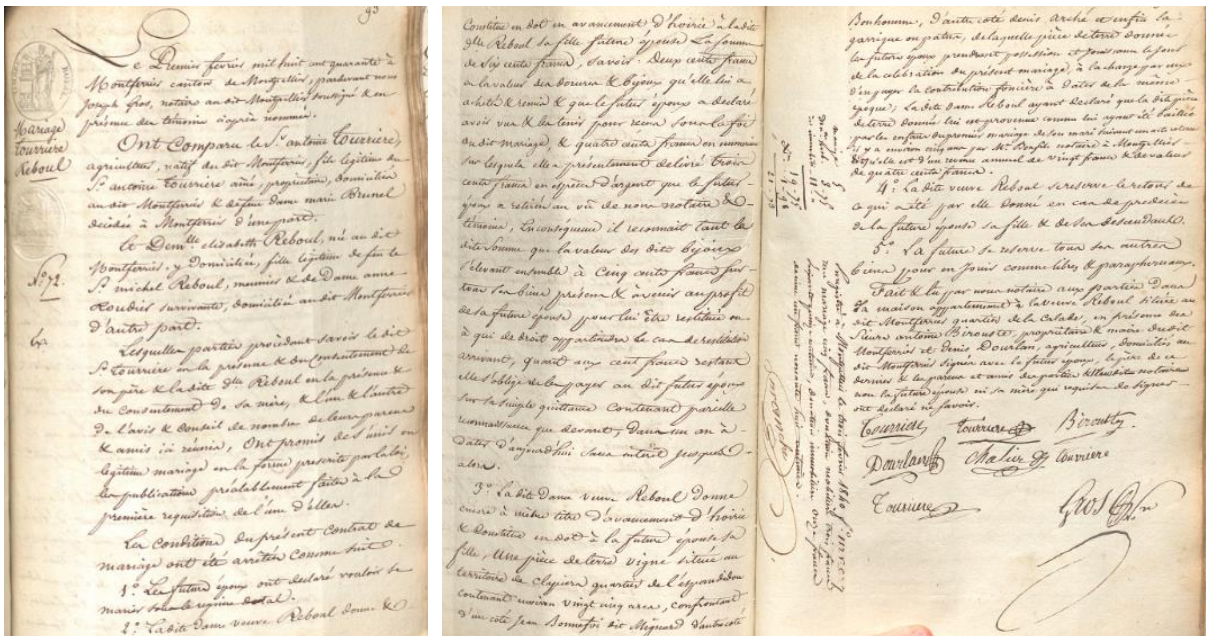 93
Le Premier février mil huit cent quarante à
Montferrier canton de Montpellier, pardevant nous
Joseph Gros, notaire audit Montpellier soussigné & en
présence des témoins ciaprès nommés.
Mariage
Tourriere
Reboul
Ont Comparu le Sr. antoine Tourriere,
agriculteur, natif du dit Montferrier, fils légitime du
Sr. antoine Tourriere ainé, propriétaire, domicilié
audit Montferrier & de feue dame marie Brunel
décédée à Montferrier d'une part.
Et Demlle elisabeth Reboul, née audit
Montferrier y Domiciliée, fille légitime de feu le
Sr. michel Reboul, meunier & de Dame anne
survivante, domiciliée audit Montferrier
d'autre part.
No. 72.
Lesquelles parties procédant savoir le dit
Sr. Tourriere en la présence & du Consentement de
son père & la dite Dlle Reboul en la présence &
du Consentement de sa mère, & l'un & l'autre
de l'avis & Conseil de nombre de leurs parens
& amis ici réunis, Ont promis de s'unir en
légitime mariage en la forme prescrite par la loi,
les publications préalablement faites à la
première requisition de l'une d'elles.
Les Conditions du présent Contrat de
mariage ont été arrêtées comme suit.
1o. Les futurs époux ont déclaré vouloir se
marier sous le regime dotal.
2o. La dite Dame veuve Reboul donne &
Constitue en dot en avancement d'hoirie à la dite
Dlle Reboul sa fille future épouse La somme
de Six cents francs, Savoir: Deux cents francs
en la valeur des dorures & bijoux qu'elle lui a
achetés & remis & que le futur époux a déclaré
avoir vus & les tenir pour reçus sous la foi
du dit mariage, & quatre cents francs en numéraire
sur lesquels elle a présentement délivré trois
cents francs en espèces d'argent que le futur
époux a retirés au vû de nous notaire &
témoins, En conséquence il reconnait tant la
dite somme que la valeur des dits bijoux
s'elevant ensemble à Cinq cents francs sur
tous ses biens présens & à venir au profit
de sa future épouse pour lui être restitués ou
à qui de droit appartiendra le cas de restitution
arrivant, quant aux cent francs restans
elle s'oblige de les payer au dit futur époux
sur la simple quittance contenant pareille
reconnaissance que devant, Dans un an à
dater d'aujourd'hui sans intérêt jusques
alors.
3o. La dite Dame veuve Reboul donne
encore à même titre d'avancement d'hoirie
& Constitue en dot à la future épouse sa
fille, Une pièce de terre vigne située au
territoire de Clapiers quartier de l'espandidou
contenant environ vingt cinq ares, confrontant
d'un coté Jean Bonnefoi dit Mignard d'autre coté
Bonhomme, d'autre coté denis Arché et enfin la
garrigue ou patus, de laquelle pièce de terre donnée
les futurs époux prendront possession et jouissance le jour
de la célébration du présent mariage, à la charge par eux
d'en payer la Contribution foncière à dater de la même
époque; La dite Dame Reboul ayant déclaré que la dite pièce
de terre donnée lui est provenue comme lui ayant été baillée
par les enfans du premier mariage de son mari suivant un acte retenu
il y a environ cinq ans par Me. notaire à Montpellier
& qu'elle est d'un revenu annuel de vingt francs & de valeur
de quatre cents francs.
4o. La dite veuve Reboul se reserve le retour de
ce qui a été par elle donné en cas de prédécès
de la future épouse sa fille & de ses descendans.
5o. La future se reserve tous ses autres
biens pour en jouir comme libres & paraphernaux.
Fait & lu par nous notaire aux parties Dans
la maison appartenant à la veuve Reboul située au
dit Montferrier quartier de la Calade, en présence des
Sieurs antoine Birouste, propriétaire & maire du dit
Montferrier et Denis Dourlan, agriculteur, domiciliés au
dit Montferrier Signés avec le futur époux, le père de ce
dernier & les parens et amis des parties & nous dit notaire
non la future épouse ni sa mère qui requises de signer
ont déclaré ne savoir.
Tourriere Tourriere Birouste
Dourlan Chalier Tourriere
Tourriere Gros